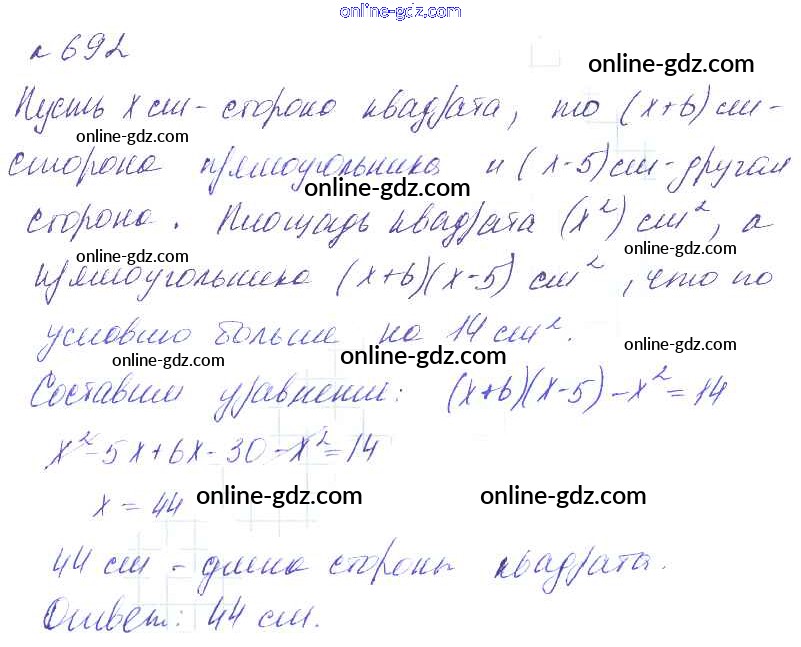 online-gdz.com
№ 692
online-gdz.com
Пусть х см - сторона квадрата, то (х+6) см -
online-gdz.com online-gdz.com
сторона прямоугольника и (х-5) см - другая
online-gdz.com
сторона. Площадь квадрата (х²) см², а
online-gdz.com online-gdz.com
прямоугольника (х+6)(х-5) см², что по
условию больше на 14 см².
online-gdz.com online-gdz.com online-gdz.com
Составим уравнение: (х+6)(х-5)-х²=14
х²-5х+6х-30-х²=14
х = 44 online-gdz.com online-gdz.com
44 см - длина стороны квадрата.
Ответ: 44 см.